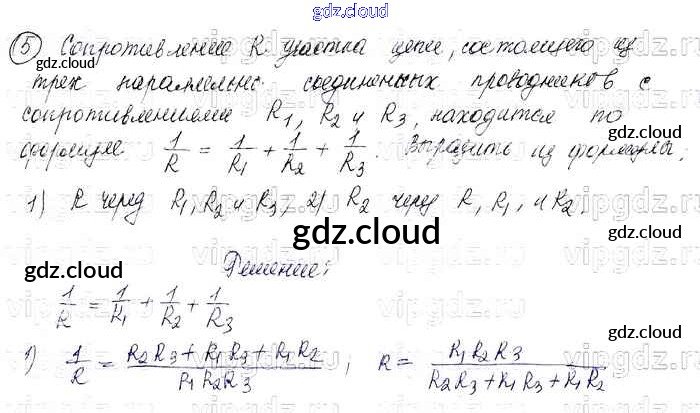 gdz.cloud
5 Сопротивление R участка цепи, состоящего из
gdz.cloud
трех параллельно соединенных проводников с
сопротивлениями R1, R2 и R3, находится по
gdz.cloud
формуле 1/R = 1/R1 + 1/R2 + 1/R3. Выразить из формулы:
1) R через R1, R2 и R3, 2) R2 через R, R1, и R2.
gdz.cloud
gdz.cloud
Решение:
1/R = 1/R1 + 1/R2 + 1/R3
gdz.cloud
1) 1/R = R2R3 + R1R3 + R1R2 / R1R2R3 ; R = R1R2R3 / R2R3 + R1R3 + R1R2
gdz.cloud